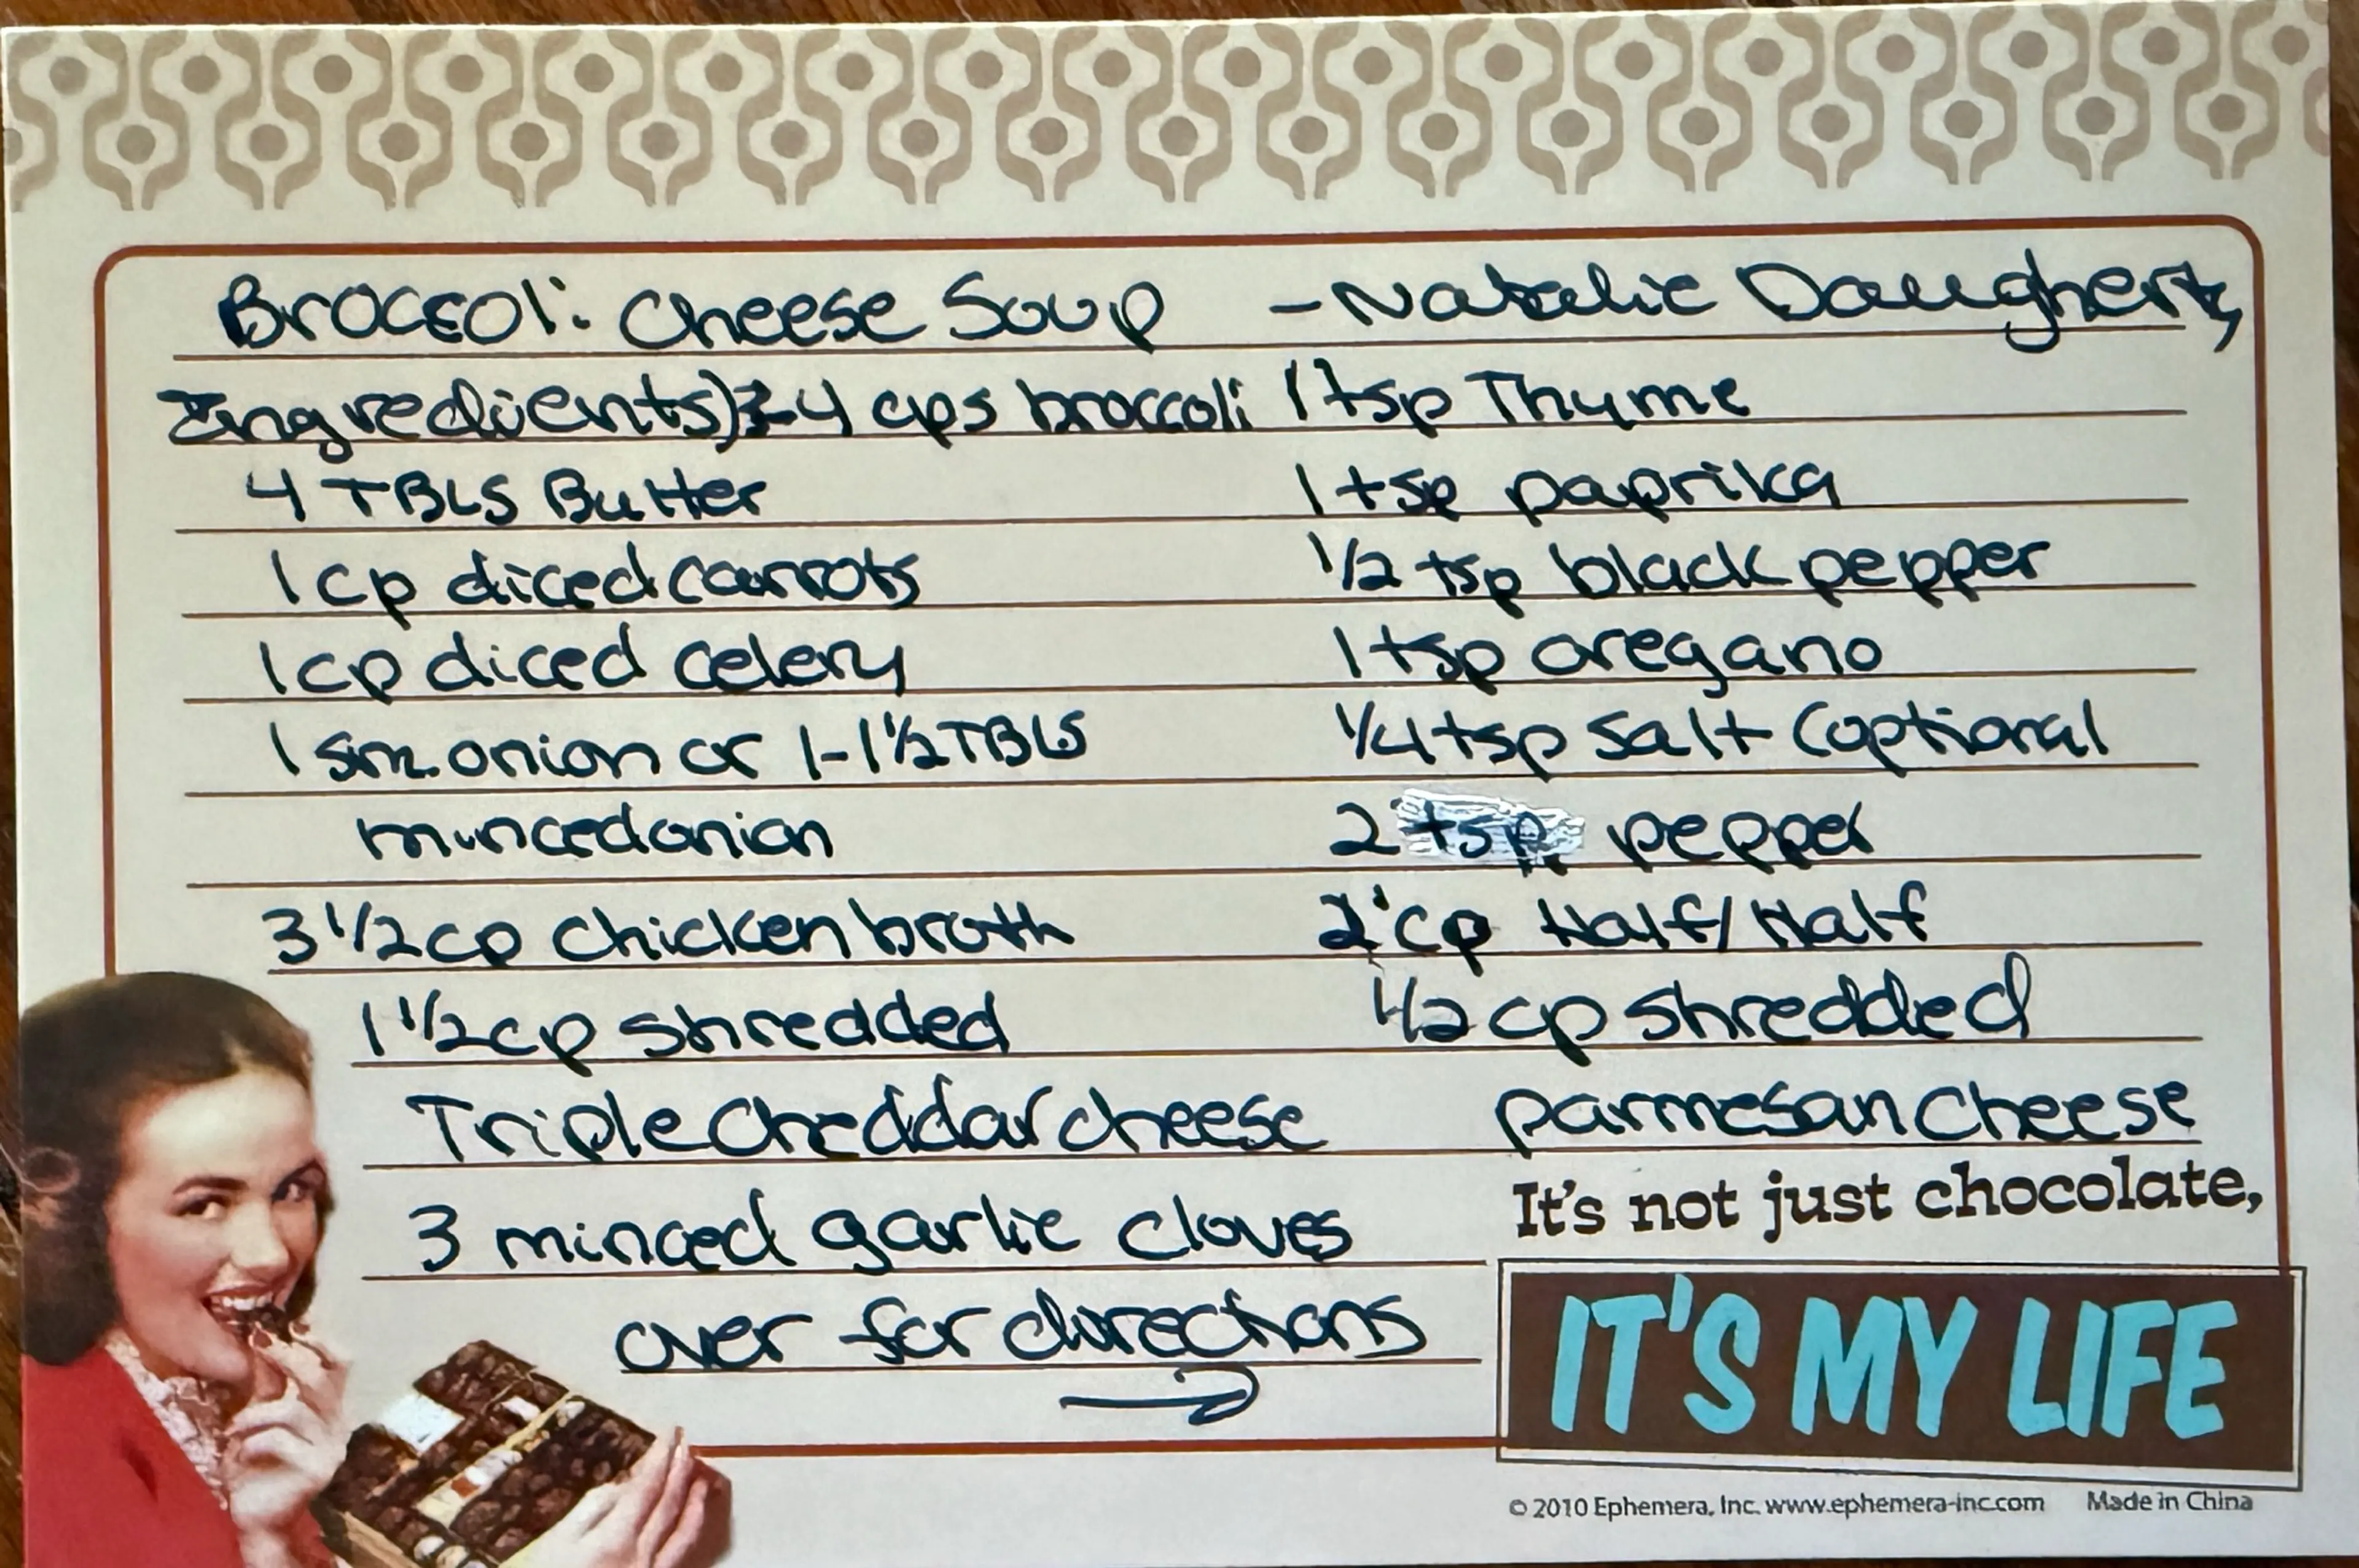 Broccoli Cheese Soup - Natalie Daugherty
Ingredients) 3-4 cps broccoli
4 TBLS Butter
1 cp diced carrots
1 cp diced celery
1 sm. onion or 1-1 1/2 TBLS
minced onion
3 1/2 cp chicken broth
1 1/2 cp shredded
Triple cheddar cheese
3 minced garlic cloves
over for directions
→
1 tsp Thyme
1 tsp paprika
1/2 tsp black pepper
1 tsp oregano
1/4 tsp salt (optional
2 tsp. pepper
2 cp Half/Half
1/2 cp shredded
parmesan cheese
It's not just chocolate,
IT'S MY LIFE
© 2010 Ephemera, Inc. www.ephemera-inc.com Made in China